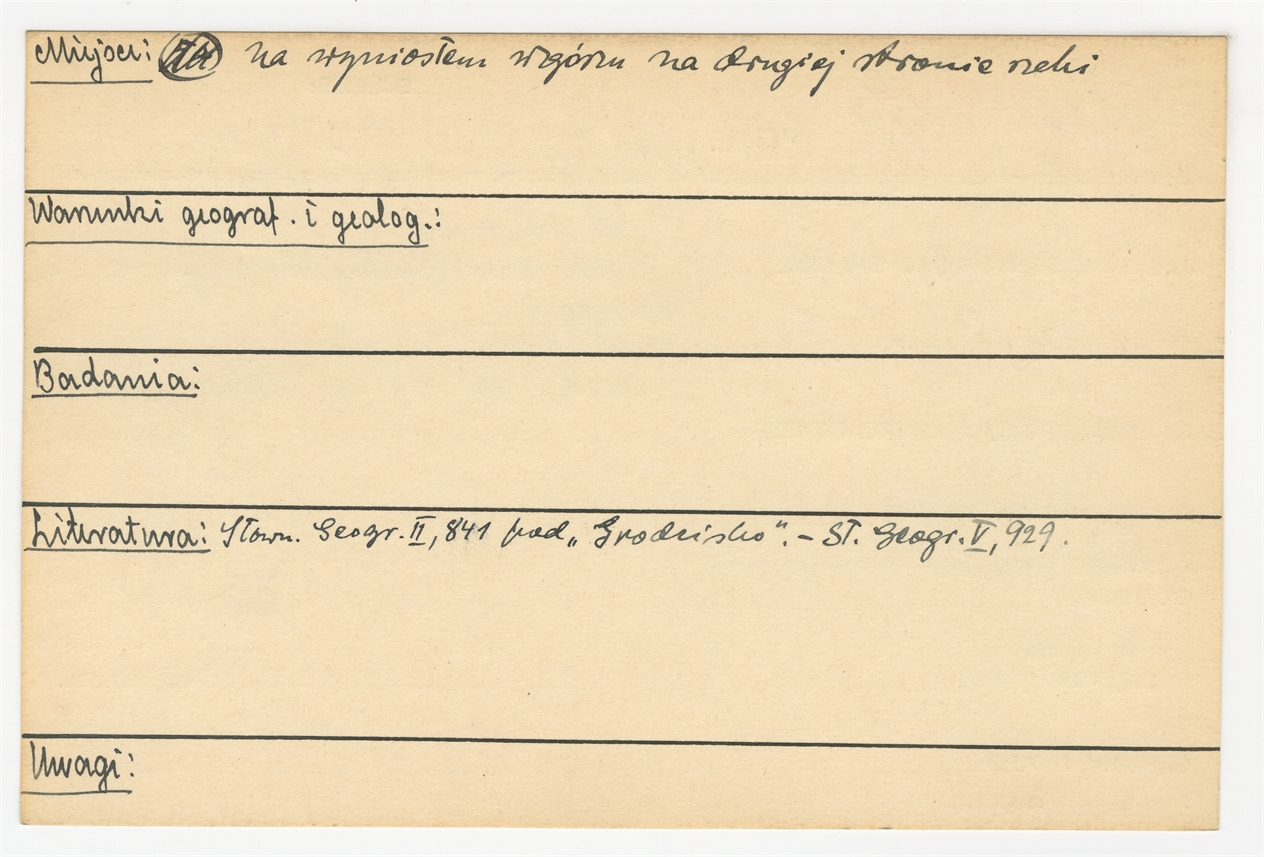 Miejsce: na wyniosłem wzgórzu na drugiej stronie rzeki
Warunki geograf. i geolog.:
Badania:
Literatura: Słown. Geogr. II, 841 pod „Grodzisko". – Sł. Geogr. V, 929.
Uwagi: